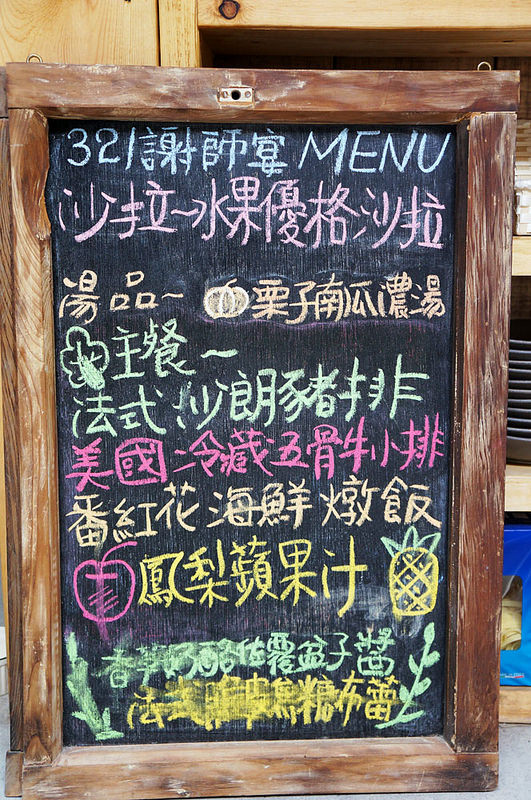 321謝師宴 MENU
沙拉~水果優格沙拉
湯品~ 栗子南瓜濃湯
主餐~
法式沙朗豚豬排
美國冷藏五骨牛小排
番紅花海鮮燉飯
鳳梨蘋果汁
香草奶酪佐覆盆子醬
法式 焦糖布蕾